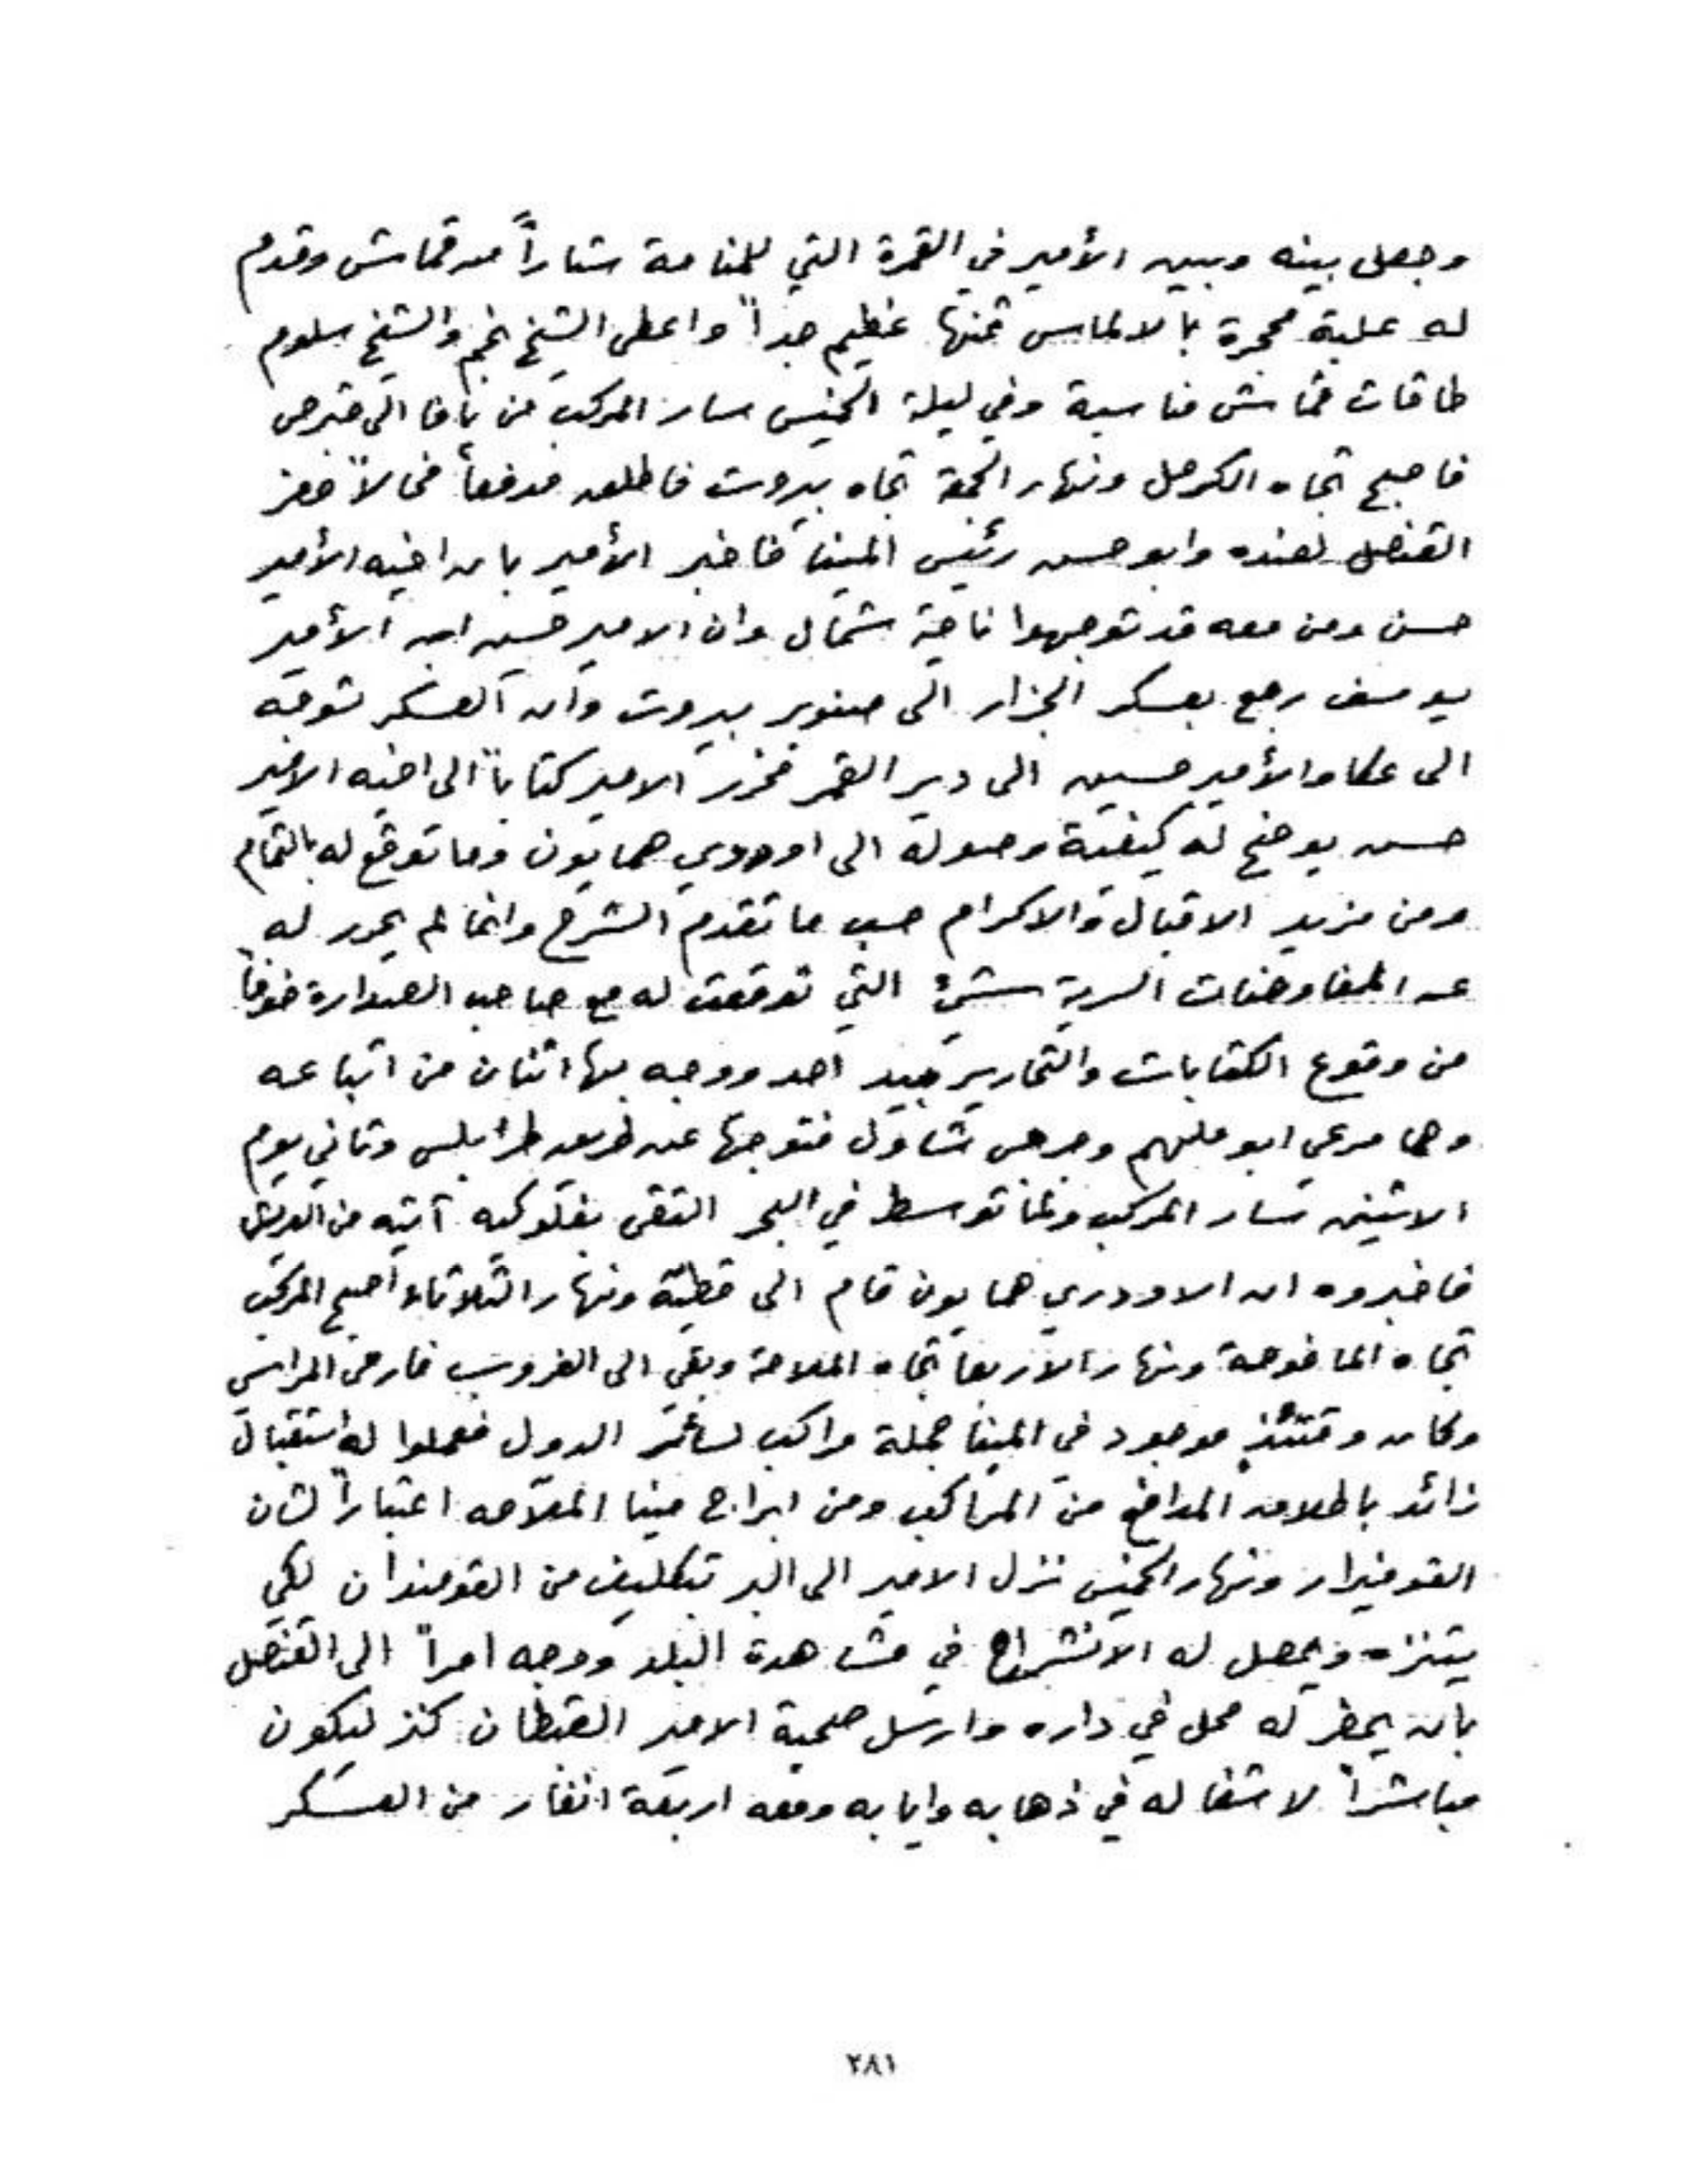 وجعل بينه وبين الأمير في القمرة التي للمنامة ستاراً من قماش وقدم
له علبة مجهرة بالالماس ثمنها عظيم جداً واعطى الشيخ نجم والشيخ سلوم
طاقات قماش مناسبة وفي ليلة الخميس سار المركب من يافا الى قبرص
فاصبح تجاه الكرمل ونهار الجمعة تجاه بيروت فاطلق مدفعاً فحالاً حضر
القنصل لعنده وابو حسن رئيس المينا فاخبر الأمير بان اخيه الأمير
حسن ومن معه قد توجهوا ناحية شمال وان الامير حسين ابن الأمير
يوسف رجع بعسكر الجزار الى صنوبر بيروت وان العسكر توجه
الى عكا والأمير حسين الى دير القمر فحرر الامير كتاباً الى اخيه الامير
حسن يوضح له كيفية وصوله الى اوردي همايون وما توقع له بالتمام
ومن مزيد الاقبال والاكرام حسب ما تقدم الشرح وانما لم يحرر له
عن المفاوضات السرية شيء التي توقعت له مع صاحب الصدارة خوفاً
من وقوع الكتابات والتحارير بيد احد ووجه بها اثنان من اتباعه
وهما مرعي ابو ملهم وجرجس شاول فتوجها عن طريق طرابلس وثاني يوم
الاثنين سار المركب ولما توسط في البحر التقى بفلوكه آتيه من العريش
فاخبروه ان الاودري همايون قام الى قطية ونهار الثلاثاء اصبح المركب
تجاه الماغوصة ونهار الاربعا تجاه الملاحة وبقي الى الغروب فارمى المراسي
وكان وقتئذٍ موجود في المينا جملة مراكب لسائر الدول فعملوا له استقبال
زائد باطلاق المدافع من المراكب ومن ابراج مينا الملاحه اعتباراً لشان
القومندار ونهار الخميس نزل الامير الى البر بتكليف من القومندان لكي
يتنزه ويحصل له الانشراح في مشاهدة البلد ووجه امراً الى القنصل
بان يحضر له محل في داره وارسل صحبة الامير القبطان كنز ليكون
مباشراً لاشغاله في ذهابه وايابه ومعه اربعة انفار من العسكر
٢٨١